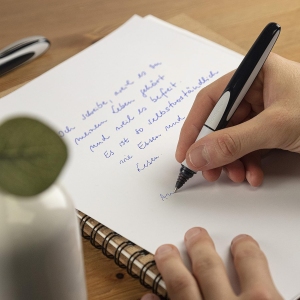 Ich schreibe, weil es zu
meinem Leben gehört
und weil es befreit.
Es ist so selbstverständlich
wie Essen und
Lesen